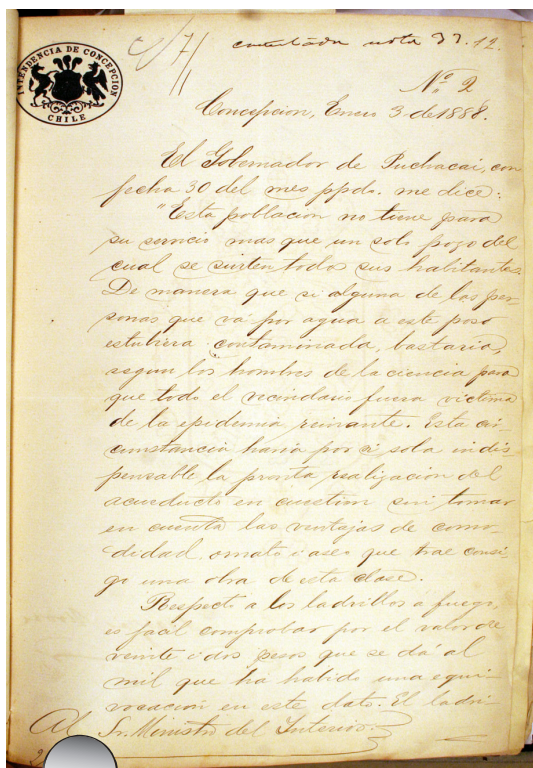 c/7/ contestada nota 33.12.
INTENDENCIA DE CONCEPCION
CHILE
Nº 2
Concepcion, Enero 3 de 1888.
El Gobernador de Puchacai, con
fecha 30 del mes ppdo. me dice:
"Esta poblacion no tiene para
su servicio mas que un solo pozo del
cual se surten todos sus habitantes.
De manera que si alguna de las per-
sonas que vá por agua a este poso
estubiera contaminada, bastaria,
segun los hombres de la ciencia para
que todo el vecindario fuera victima
de la epidemia reinante. Esta cir-
cunstancia haria por si sola indis-
pensable la pronta realizacion del
acueducto en cuestion sin tomar
en cuenta las ventajas de como-
didad, ornato i aseo que trae consi-
go una obra de esta clase.
Respecto a los ladrillos a fuego,
es facil comprobar por el valor de
veinte i dos pesos que se dá al
mil que ha habido una equi-
vocacion en este dato. El ladri-
Al Sr. Ministro del Interior.